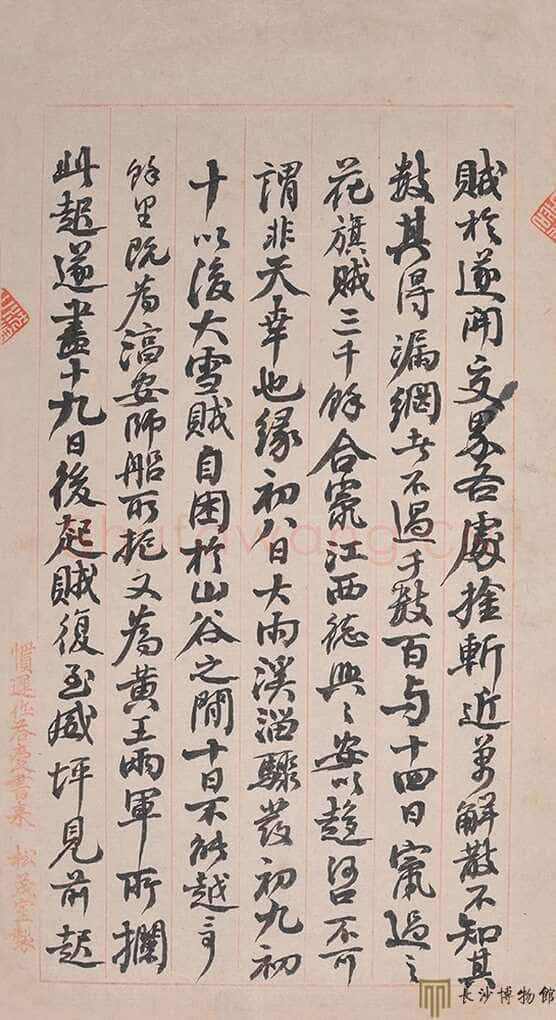 賊於遂開交界各處擒斬近萬解散不知其
數其得漏網者不過千數百与十四日竄過之
花旗賊三千餘合竄江西德興興安以趨河口不可
謂非天幸也緣初八日大雨溪溜驟發初九初
十以後大雪賊自困於山谷之間十日不能越
餘里既為淳安師船所扼又為黃王兩軍所攔
此起遂盡十九日後起賊復至威坪見前起
松茂室製
長沙博物館